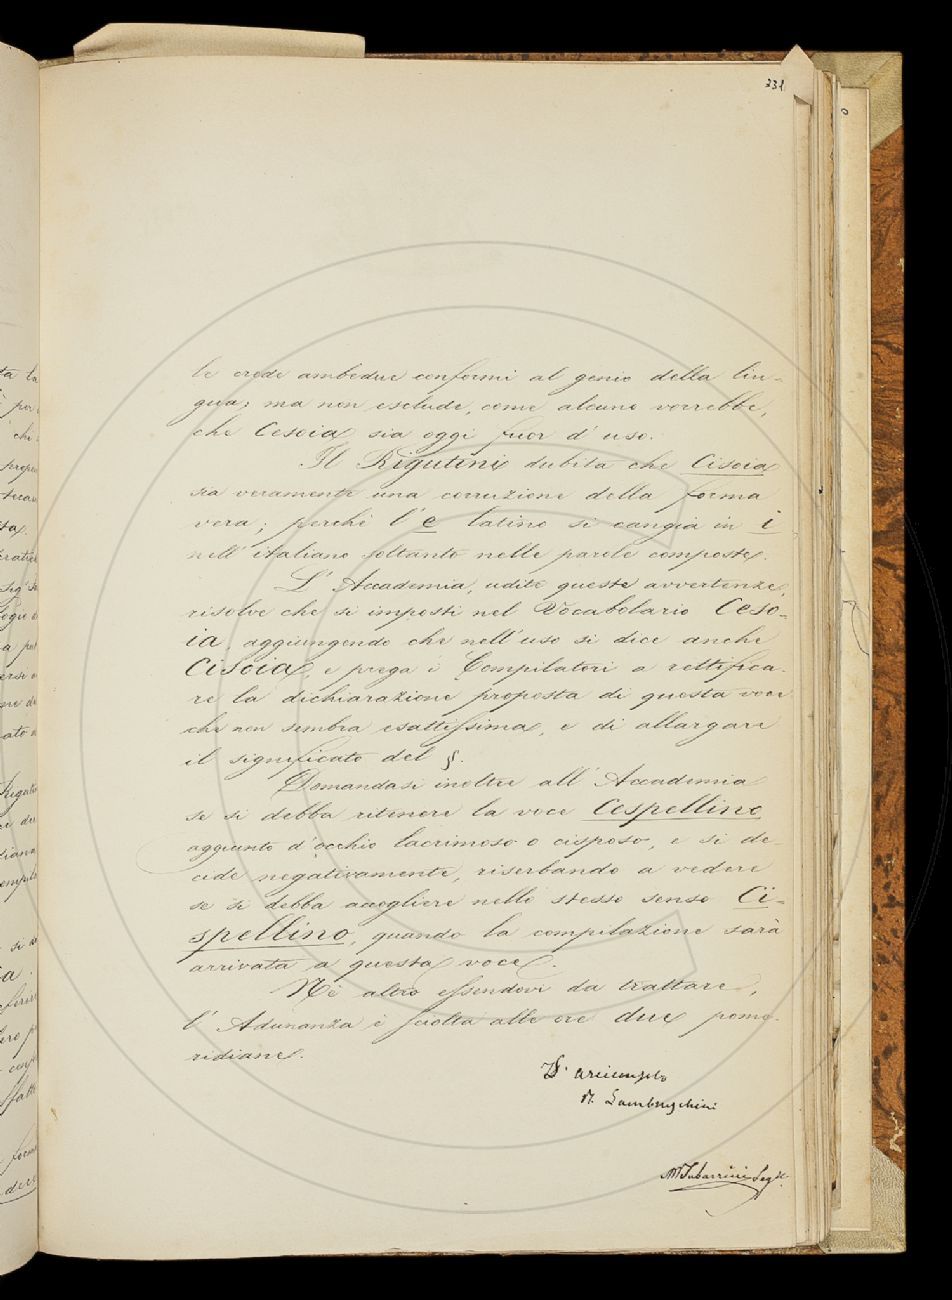 331
le crede ambedue conformi al genio della lin-
gua; ma non esclude, come alcuno vorrebbe,
che Cesoia sia oggi fuor d'uso.
Il Rigutini dubita che Cisoia
sia veramente una corruzione della forma
vera; perchè l'e latino si cangia in i
nell'italiano soltanto nelle parole composte.
L'Accademia, udite queste avvertenze,
risolve che si imposti nel Vocabolario Ceso-
ia, aggiungendo che nell'uso si dice anche
Cisoia, e prega i Compilatori a rettifica-
re la dichiarazione proposta di questa voce
che non sembra esattissima, e di allargare
il significato del §.
Domandasi inoltre all'Accademia
se si debba ritenere la voce Cespellino,
aggiunto d'occhio lacrimoso o cisposo, e si de-
cide negativamente, riserbando a vedere
se si debba accogliere nello stesso senso Ci-
spellino, quando la compilazione sarà
arrivata a questa voce.
Nè altro essendovi da trattare,
l'Adunanza è sciolta alle ore due pome-
ridiane.
V° Arciconsolo
R. Lambruschini
M Tabarrini Seg.